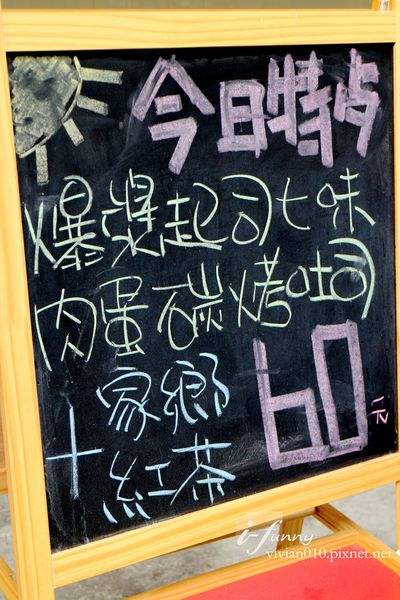 今日特点
爆漿起司七味
肉蛋碳烤吐司
+家鄉紅茶
60元
i-funny
vivian010.pixnet.net